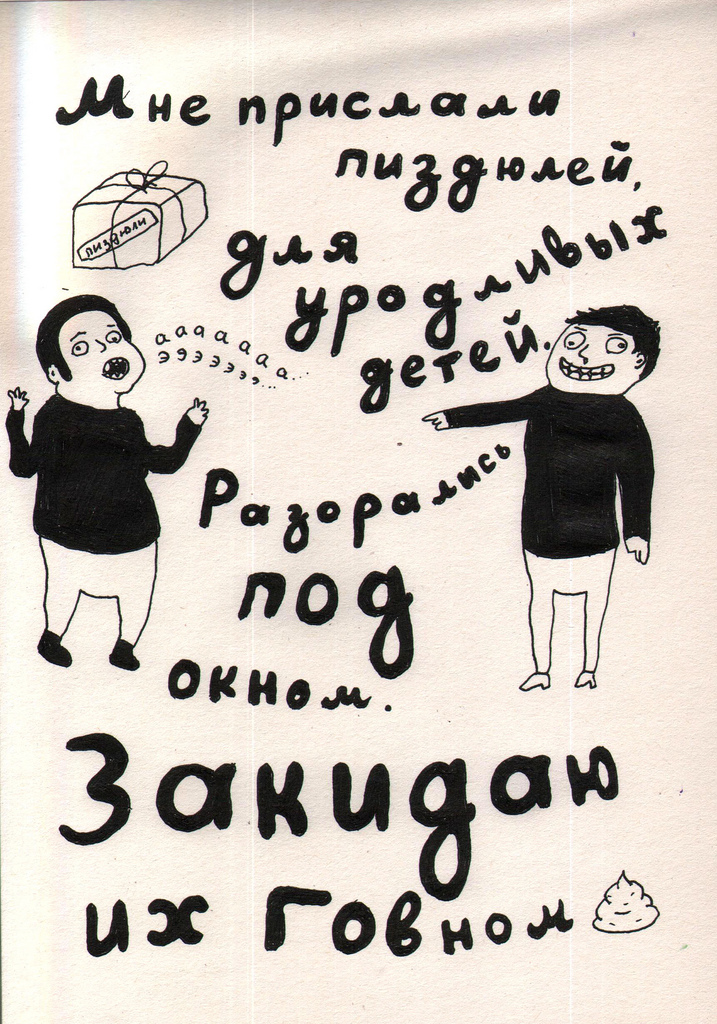 Мне прислали
пиздюлей,
пиздюли
для
уродливых
детей.
аааааааа...
ээээээээ...
Разорались
под
окном.
Закидаю
их Говном